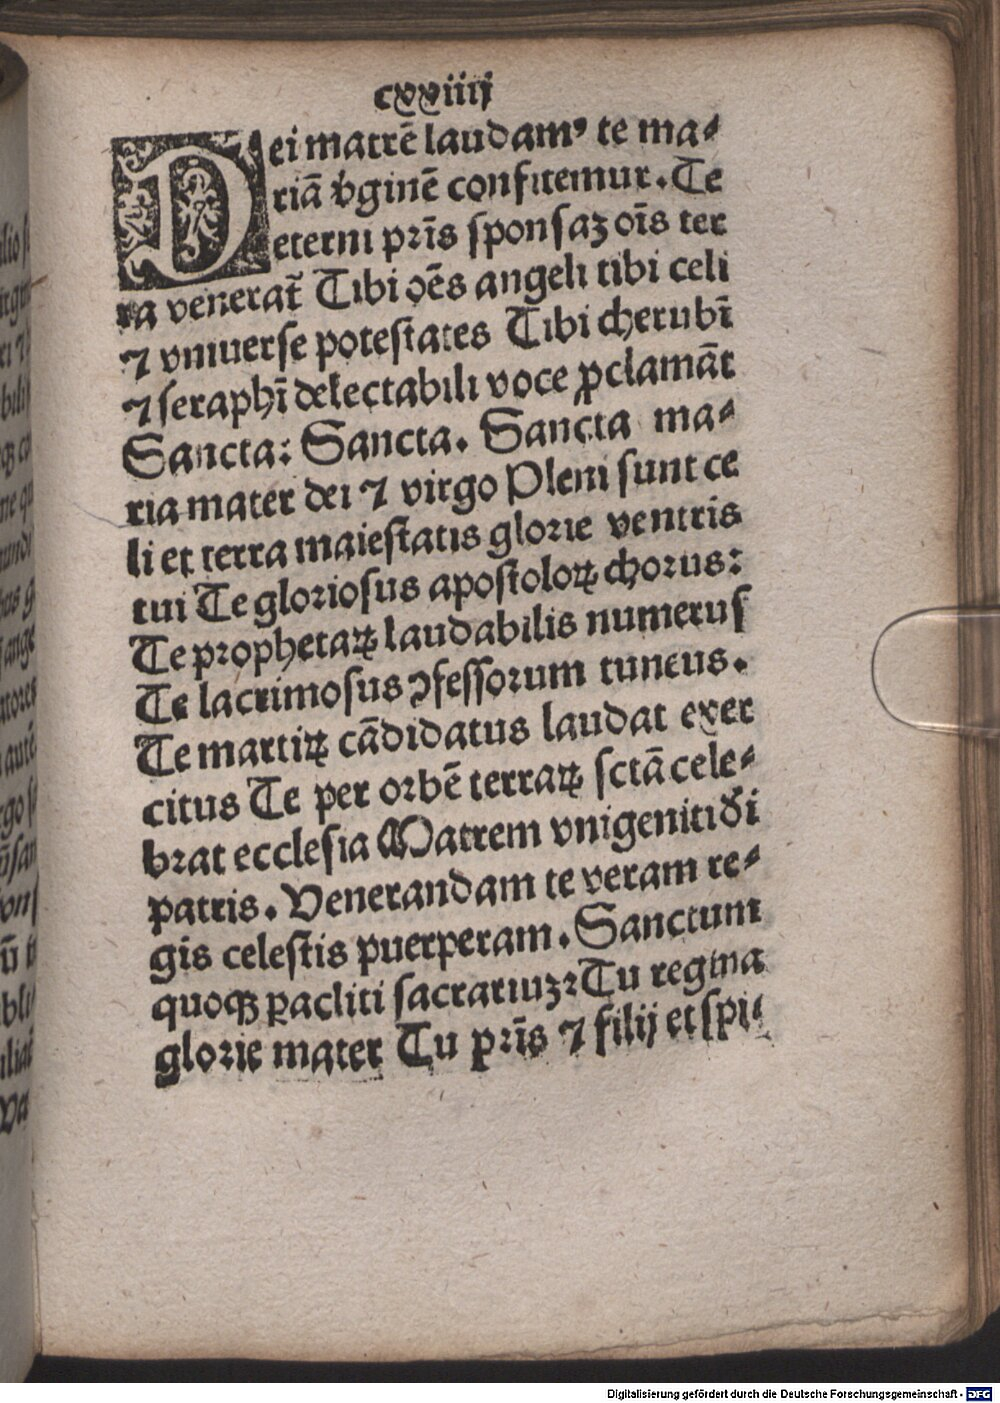 cxxiiij
Dei matrē laudamꝰ te ma⸗
riā v̄ginē confitemur. Te
eterni pr̄is sponsaꝫ oīs ter
ra venerat̄ Tibi oēs angeli tibi celi
⁊ vniuerse potestates Tibi cherubī
⁊ seraphī delectabili voce ꝓclamāt
Sancta: Sancta. Sancta ma⸗
ria mater dei ⁊ virgo Pleni sunt ce
li et terra maiestatis glorie ventris
tui Te gloriosus apostoloꝝ chorus:
Te prophetaꝝ laudabilis numerus
Te lacrimosus ꝯfessorum tuneus.
Te martiꝝ cādidatus laudat exer
citus Te per orbē terraꝝ sctā cele⸗
brat ecclesia Matrem vnigeniti dī
patris. Venerandam te veram re⸗
gis celestis puerperam. Sanctum
quoqꝫ ꝑacliti sacrariuꝫ: Tu regina
glorie mater Tu pr̄is ⁊ filij et spi⸗
Digitalisierung gefördert durch die Deutsche Forschungsgemeinschaft - DFG